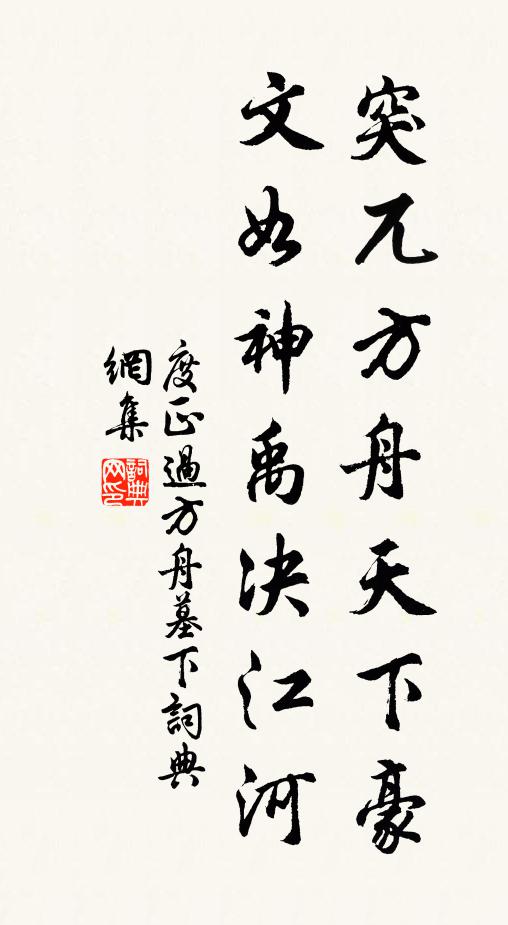 突兀方舟天下豪
文如神禹决江河
度正過方舟墓下詞典
網集
詞典
网印